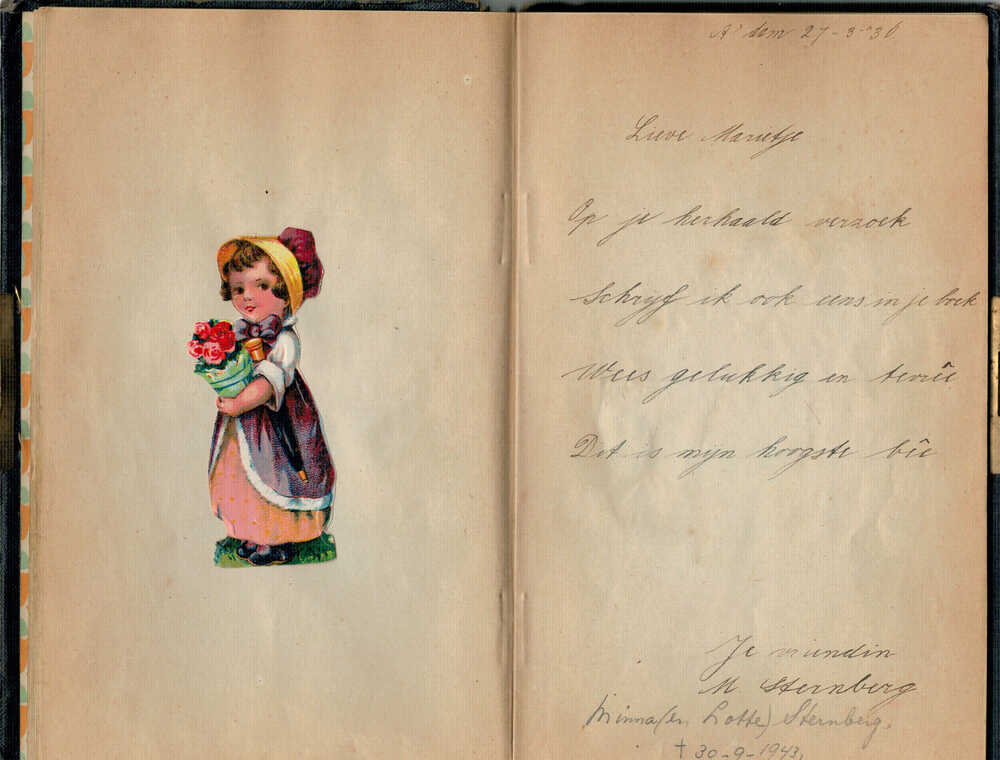 A'dam 27-3-'36
Lieve Marietje
Op je herhaald verzoek
Schrijf ik ook eens in je boek
Wees gelukkig en tevrêe
Dit is mijn hoogste bêe
Je vriendin
M Sternberg
Minna (en Lotte) Sternberg.
† 30-9-1943,